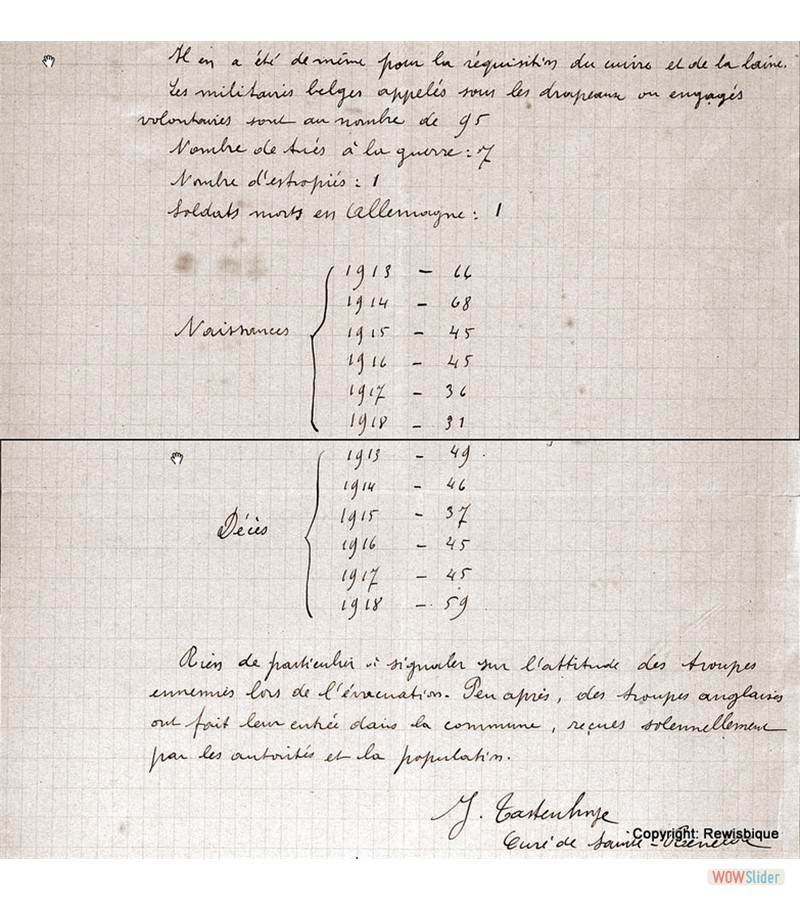 Il en a été de même pour la réquisition du cuivre et de la laine.
Les militaires belges appelés sous les drapeaux ou engagés
volontaires sont au nombre de 95
Nombre de tués à la guerre : 7
Nombre d'estropiés : 1
Soldats morts en Allemagne : 1
1913 – 66
1914 – 68
Naissances
1915 – 45
1916 – 45
1917 – 36
1918 – 31
1913 – 49
1914 – 46
1915 – 37
Décès
1916 – 45
1917 – 45
1918 – 59
Rien de particulier à signaler sur l'attitude des troupes
ennemies lors de l'évacuation. Peu après, des troupes anglaises
ont fait leur entrée dans la commune, reçues solennellement
par les autorités et la population.
J.
Curé de Sainte-
Copyright: Rewisbique
WOWSlider